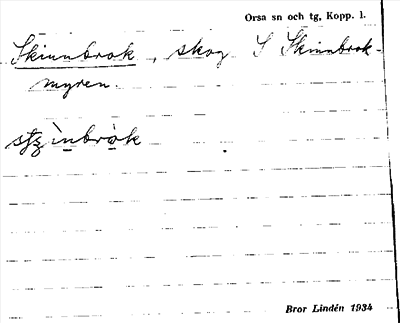 Orsa sn och tg, Kopp. l.
Skinnbrok, skog S Skinnbrok-
myren.
Bror Lindén 1934